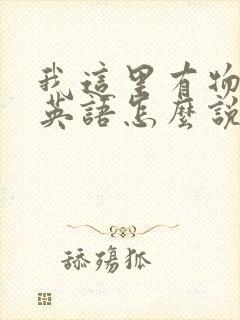 我這里有物
英語怎麼說
舔殤狐